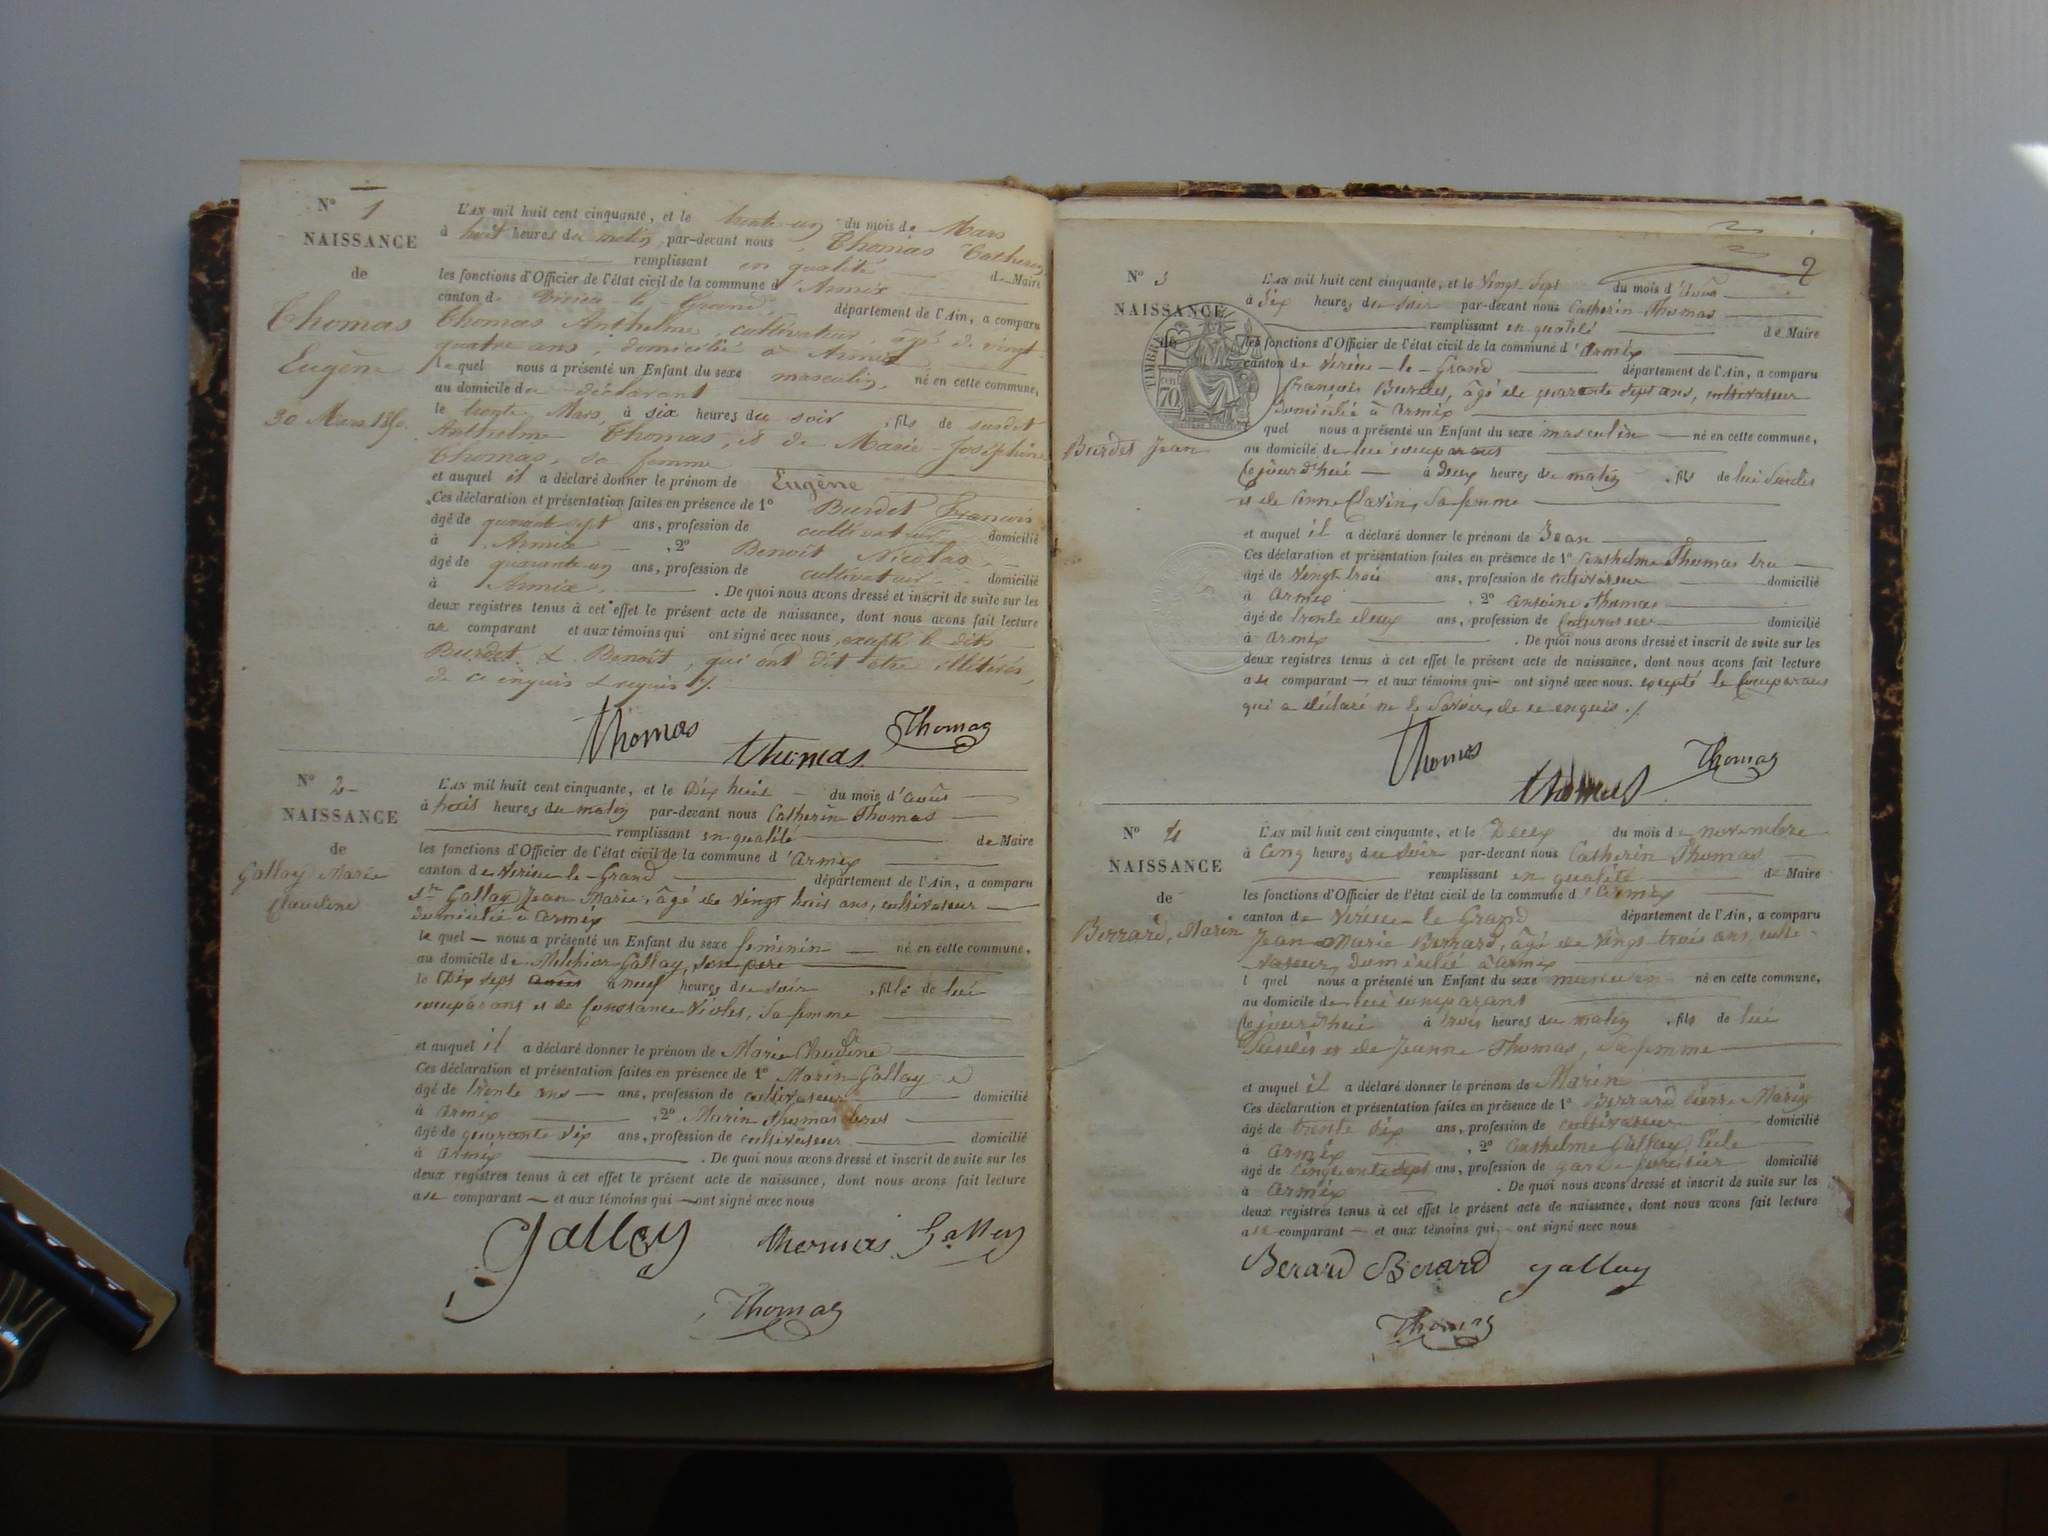 N° 1
NAISSANCE
de
Thomas
Eugène
30 Mars 1850.
L'AN mil huit cent cinquante, et le trente-un du mois de Mars
à huit heures du matin, par-devant nous Thomas Catherin
remplissant en qualité de Maire
les fonctions d'Officier de l'état civil de la commune d'Armix
canton de Virieu-le-Grand, département de l'Ain, a comparu
Thomas Anthelme, cultivateur, âgé de vingt-
quatre ans, domicilié à Armix
lequel nous a présenté un Enfant du sexe masculin, né en cette commune,
au domicile du déclarant
le trente Mars, à six heures du soir, fils de susdit
Anthelme Thomas, et de Marie-Joséphine
Thomas, sa femme
et auquel il a déclaré donner le prénom de Eugène
Ces déclaration et présentation faites en présence de 1° Burdet François
âgé de quarante-sept ans, profession de cultivateur domicilié
à Armix, 2° Benoît Nicolas,
âgé de quarante-un ans, profession de cultivateur domicilié
à Armix. De quoi nous avons dressé et inscrit de suite sur les
deux registres tenus à cet effet le présent acte de naissance, dont nous avons fait lecture
au comparant et aux témoins qui ont signé avec nous, excepté le dits
Burdet & Benoît, qui ont dit être illitérés,
de ce enquis & requis ./.
Thomas Thomas Thomas
N° 2
NAISSANCE
de
Gallay Marie
Claudine
L'AN mil huit cent cinquante, et le Dix huit du mois d'août
à huit heures du matin par-devant nous Catherin Thomas
remplissant en qualité de Maire
les fonctions d'Officier de l'état civil de la commune d'Armix
canton de Virieu-le-Grand département de l'Ain, a comparu
Sr Gallay Jean Marie, âgé de vingt trois ans, cultivateur
domicilié à Armix
lequel nous a présenté un Enfant du sexe féminin né en cette commune,
au domicile de Melchior Gallay, son père
le Dix sept août à neuf heures du soir, fille de lui
comparant et de Constance Violet, sa femme
et auquel il a déclaré donner le prénom de Marie Claudine
Ces déclaration et présentation faites en présence de 1° Marin Gallay
âgé de trente ans ans, profession de cultivateur domicilié
à Armix, 2° Marin Thomas
âgé de quarante dix ans, profession de cultivateur domicilié
à Armix. De quoi nous avons dressé et inscrit de suite sur les
deux registres tenus à cet effet le présent acte de naissance, dont nous avons fait lecture
au comparant et aux témoins qui ont signé avec nous
Gallay Thomas Gallay
Thomas
2
N° 3
NAISSANCE
de
TIMBRE
70
Burdet Jean
L'AN mil huit cent cinquante, et le Vingt-sept du mois d'août
à Six heures du soir par-devant nous Catherin Thomas
remplissant en qualité de Maire
les fonctions d'Officier de l'état civil de la commune d'Armix
canton de Virieu-le-Grand département de l'Ain, a comparu
François Burdet, âgé de quarante sept ans, cultivateur
Domicilié à Armix
quel nous a présenté un Enfant du sexe masculin né en cette commune,
au domicile de lui comparant
Cejourd'hui à Deux heures du matin, fils de lui Susdit
et de Anne Clavin, Sa femme
et auquel il a déclaré donner le prénom de Jean
Ces déclaration et présentation faites en présence de 1° Anthelme Thomas
âgé de Vingt trois ans, profession de cultivateur domicilié
à Armix, 2° Antoine Thomas
âgé de trente deux ans, profession de Cultivateur domicilié
à Armix. De quoi nous avons dressé et inscrit de suite sur les
deux registres tenus à cet effet le présent acte de naissance, dont nous avons fait lecture
au comparant et aux témoins qui ont signé avec nous. excepté le Comparant
qui a déclaré ne le Savoir, de ce enquis ./.
Thomas Thomas Thomas
N° 4
NAISSANCE
de
Berrard, Marin
L'AN mil huit cent cinquante, et le Deux du mois de novembre
à Cinq heures du soir par-devant nous Catherin Thomas
remplissant en qualité de Maire
les fonctions d'Officier de l'état civil de la commune d'Armix
canton de Virieu le Grand département de l'Ain, a comparu
Jean Marie Berrard, âgé de Vingt trois ans, culti-
vateur, Domicilié à Armix
l quel nous a présenté un Enfant du sexe masculin né en cette commune,
au domicile de lui comparant
Cejourd'hui à trois heures du matin, fils de lui
Susdit et de Jeanne Thomas, Sa femme
et auquel il a déclaré donner le prénom de Marin
Ces déclaration et présentation faites en présence de 1° Berrard Pierre Marie
âgé de trente dix ans, profession de cultivateur domicilié
à Armix, 2° Anthelme Gallay,
âgé de Cinquante sept ans, profession de garde forestier domicilié
à Armix. De quoi nous avons dressé et inscrit de suite sur les
deux registres tenus à cet effet le présent acte de naissance, dont nous avons fait lecture
au comparant et aux témoins qui ont signé avec nous
Berard Berard Gallay
Thomas